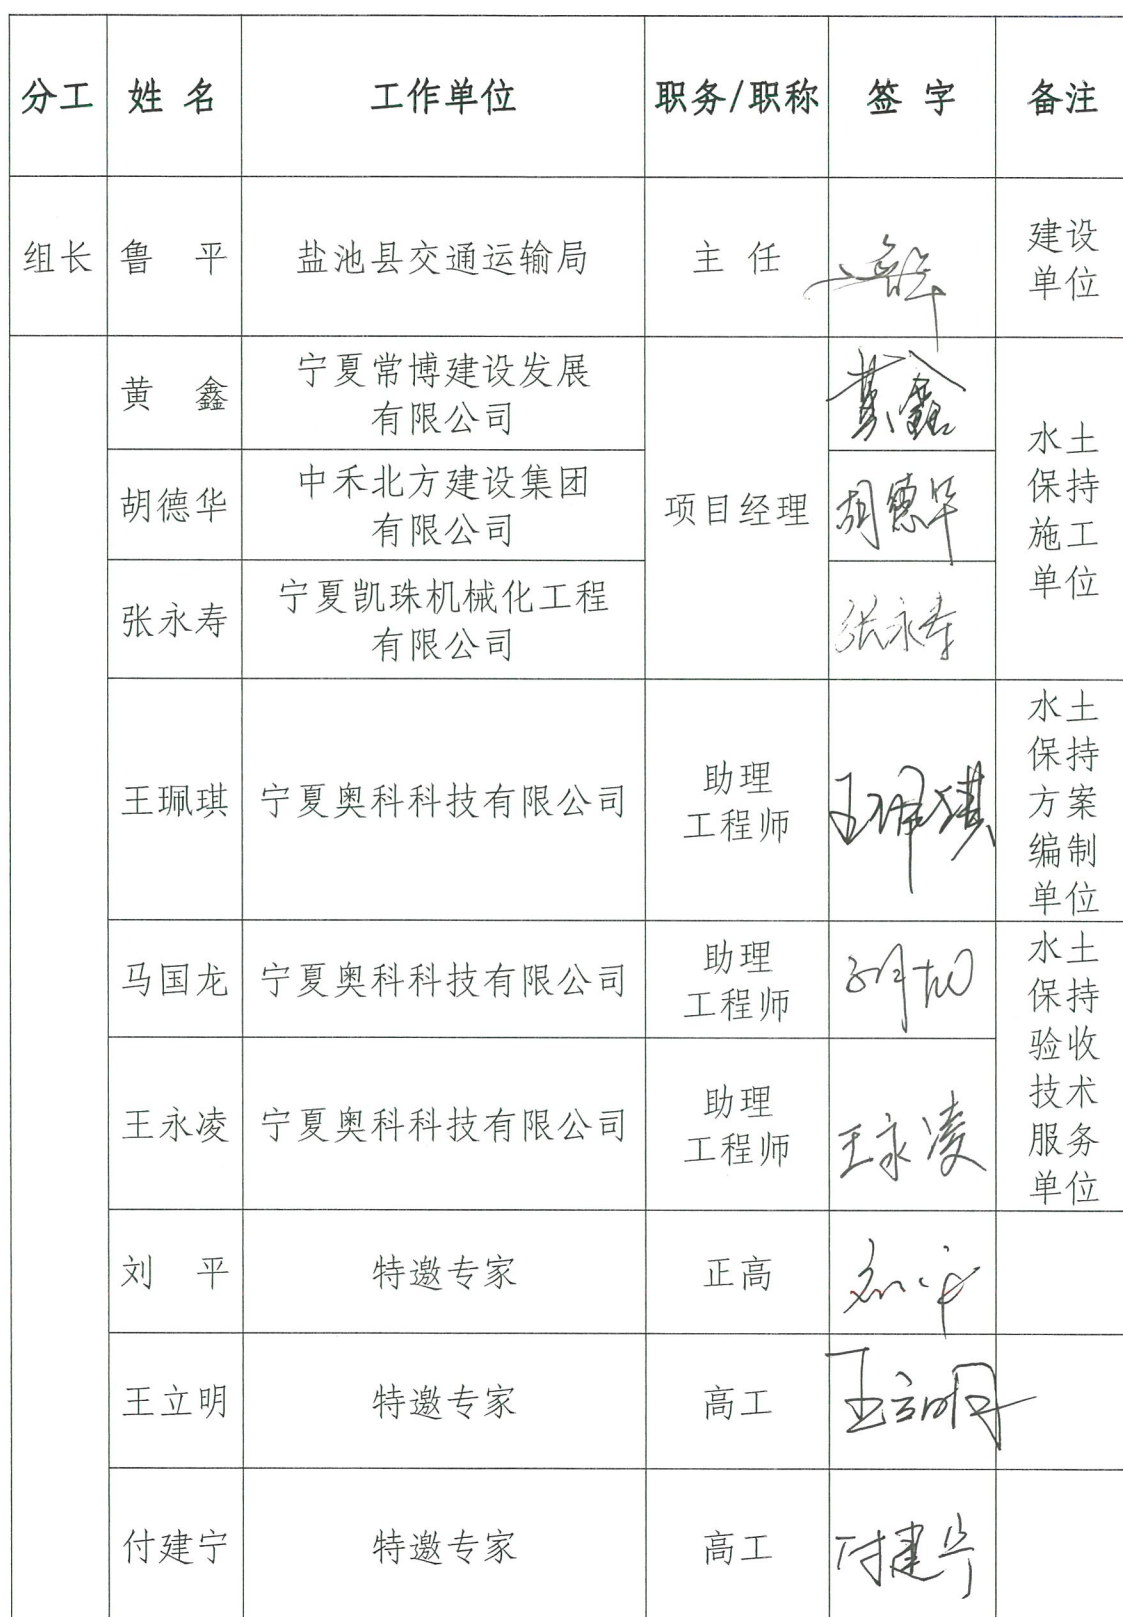 分工 姓 名 工作单位 职务/职称 签 字 备注
组长 鲁 平 盐池县交通运输局 主 任 鲁平 建设
单位
黄 鑫 宁夏常博建设发展
有限公司 黄鑫
胡德华 中禾北方建设集团
有限公司 项目经理 胡德华 水土
保持
施工
单位
张永寿 宁夏凯珠机械化工程
有限公司 张永寿
王珮琪 宁夏奥科科技有限公司 助理
工程师 王珮琪 水土
保持
方案
编制
单位
马国龙 宁夏奥科科技有限公司 助理
工程师 水土
保持
验收
技术
服务
单位
王永凌 宁夏奥科科技有限公司 助理
工程师 王永凌
刘 平 特邀专家 正高 刘平
王立明 特邀专家 高工 王立明
付建宁 特邀专家 高工 付建宁